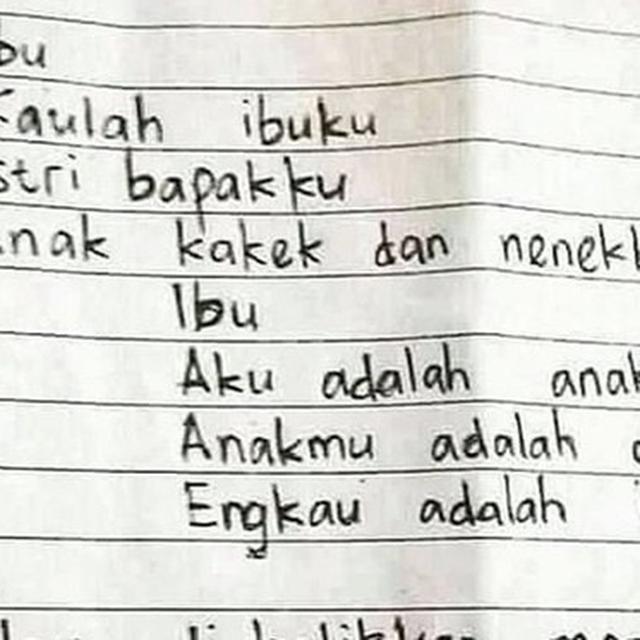 bu
Kaulah ibuku
stri bapakku
nak kakek dan nenek
Ibu
Aku adalah anak
Anakmu adalah
Engkau adalah